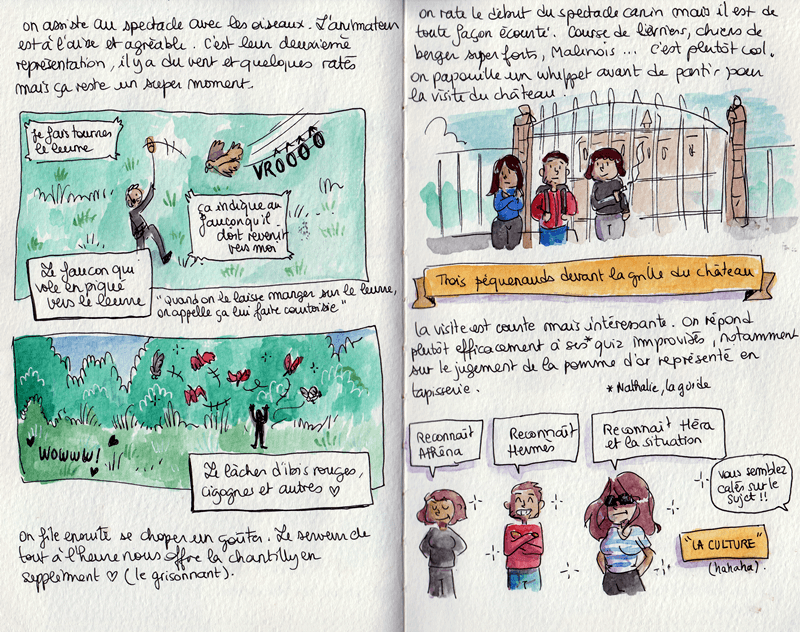 on assiste au spectacle avec les oiseaux. L'animateur
est à l'aise et agréable. C'est leur deuxième
représentation, il y a du vent et quelques ratés
mais ça reste un super moment.
je fais tourner
le leurre
VROOOO
ça indique au
faucon qu'il
doit revenir
vers moi
Le faucon qui
vole en piqué
vers le leurre
"Quand on le laisse manger sur le leurre,
on appelle ça lui faire courtoisie"
WOWWW!
Le lâcher d'ibis rouges,
cigognes et autres ♡
On file ensuite se choper un goûter. Le serveur de
tout à l'heure nous offre la chantilly en
supplément ♡ (le grisonnant).
on rate le début du spectacle canin mais il est de
toute façon écourté. Course de lévriers, chiens de
berger super forts, Malinois... C'est plutôt cool.
on papouille un whippet avant de partir pour
la visite du château.
Trois péquenauds devant la grille du château
la visite est courte mais intéressante. On répond
plutôt efficacement à ses* quiz improvisés, notamment
sur le jugement de la pomme d'or représenté en
tapisserie.
* Nathalie, la guide
Reconnaît
Athéna
Reconnaît
Hermès
Reconnaît Héra
et la situation
vous semblez
calés sur le
sujet!!
"LA CULTURE"
(hahaha).